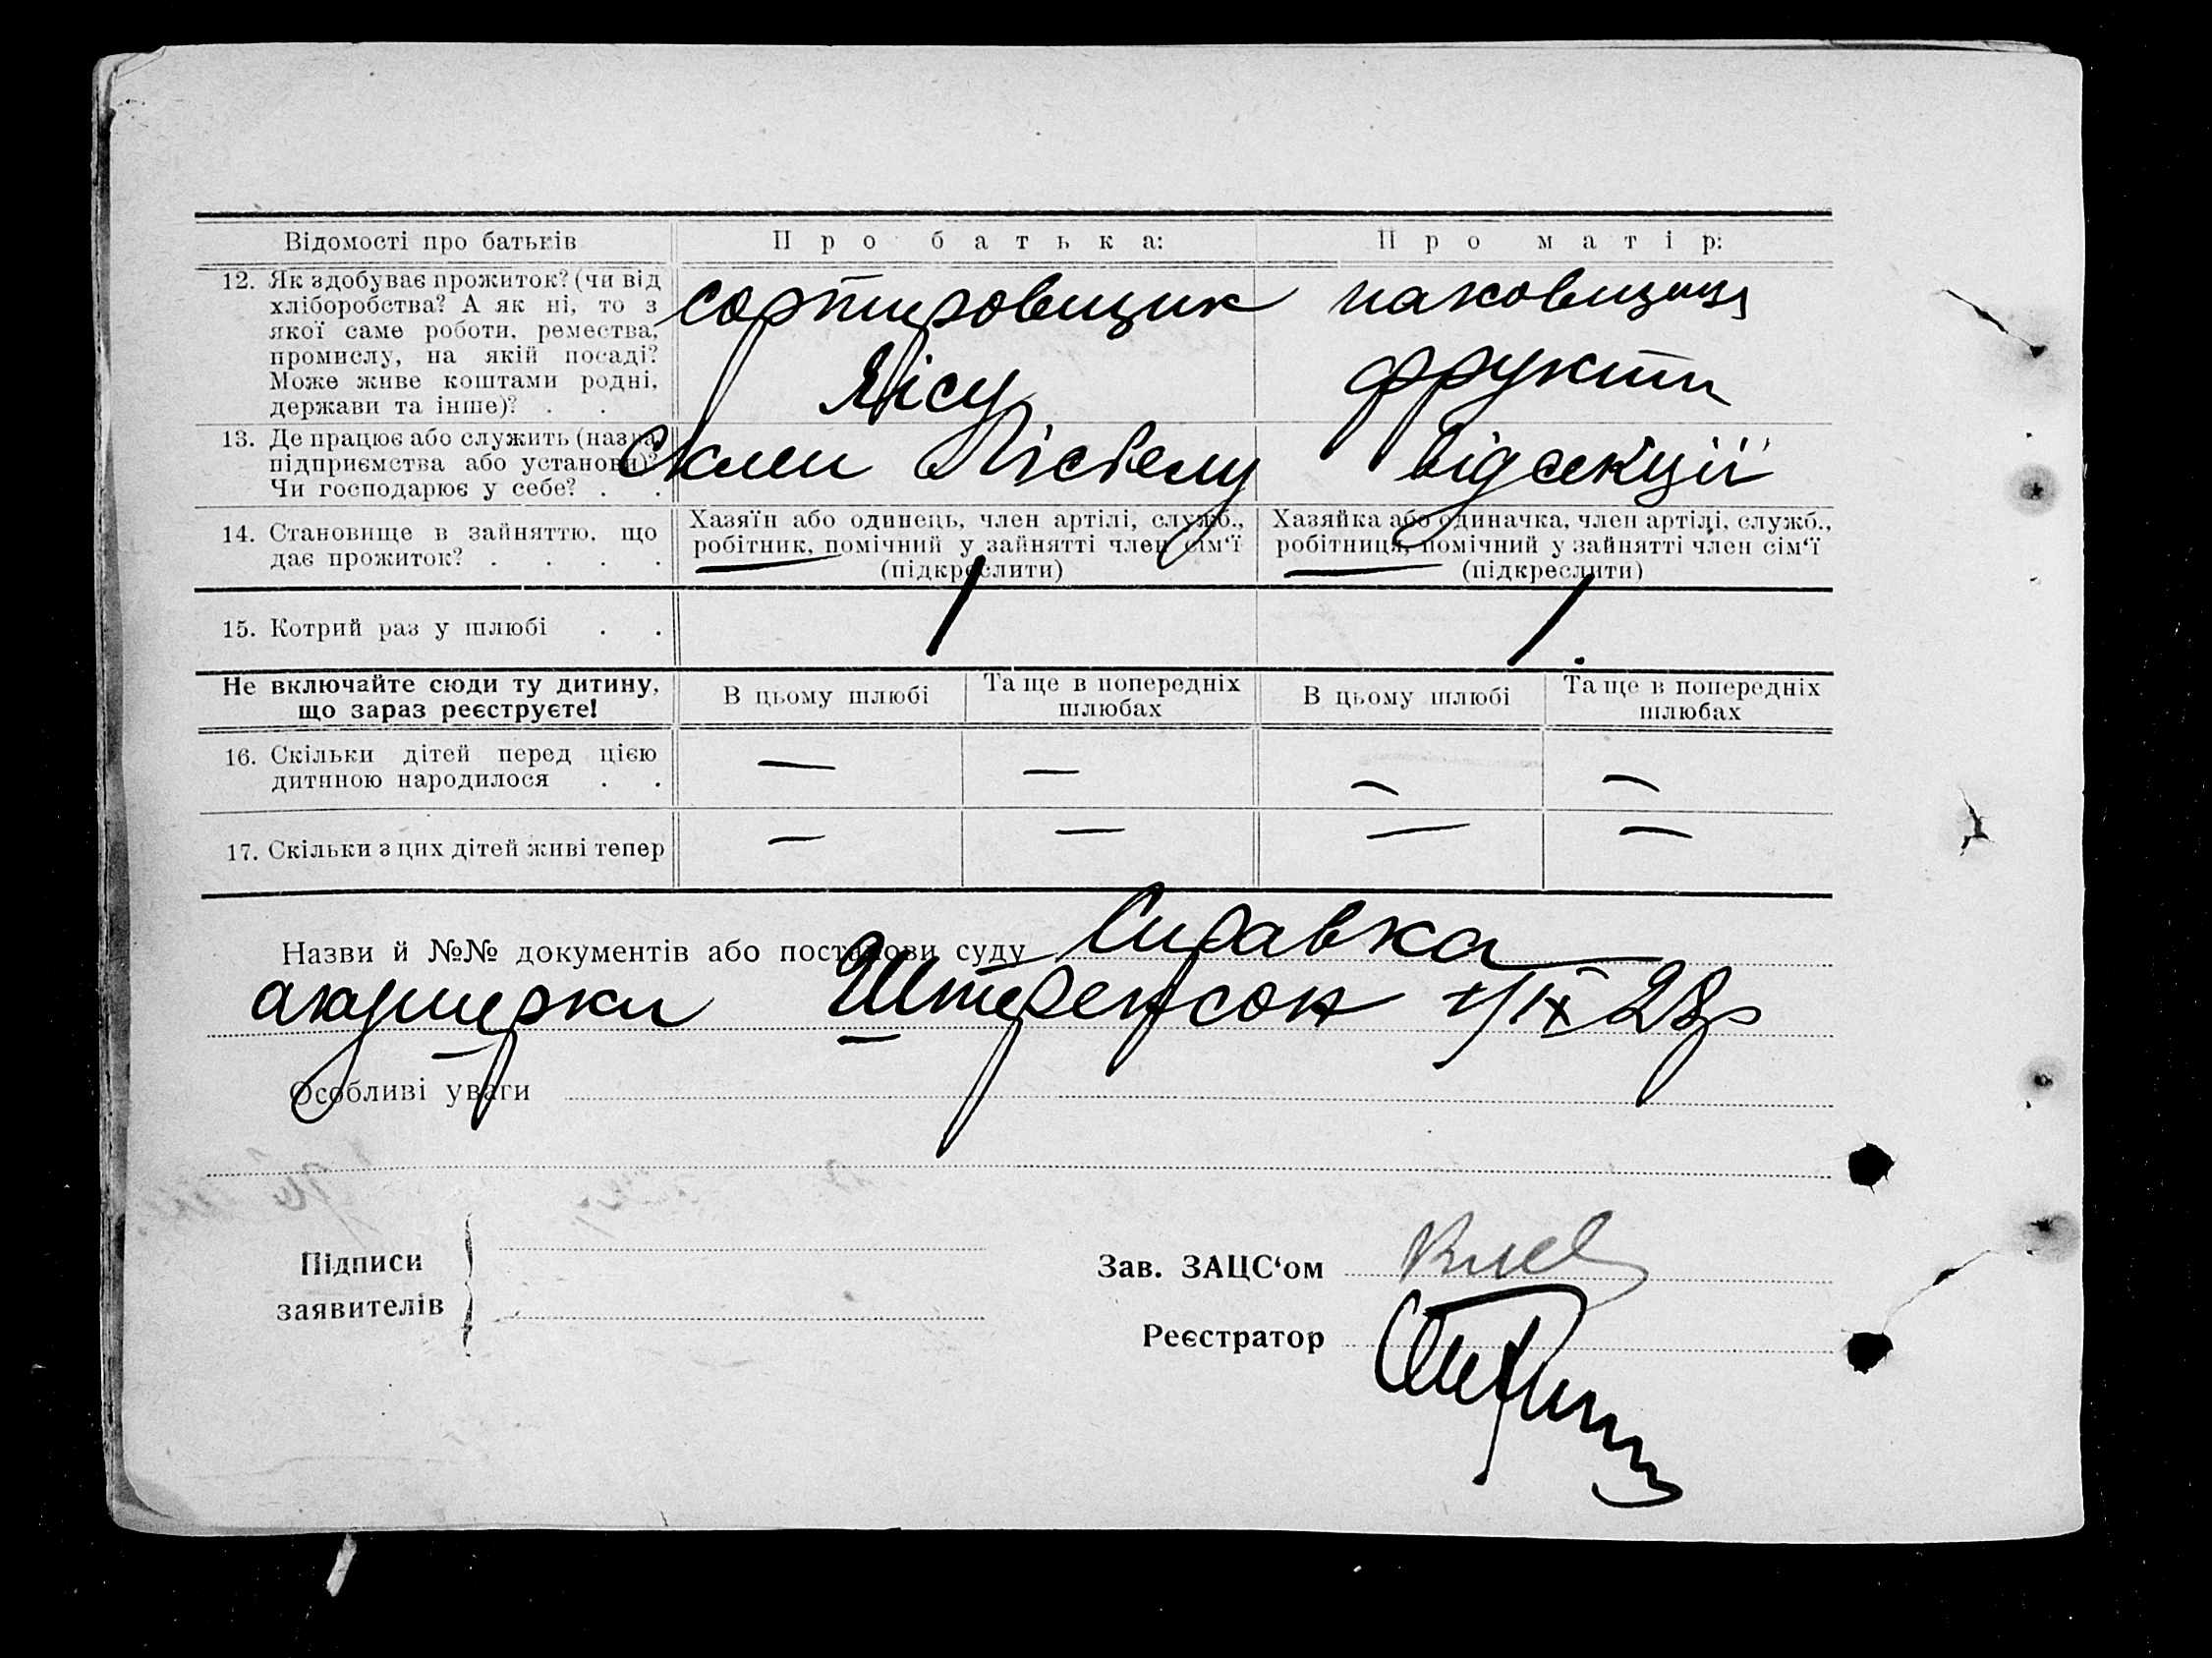 Відомості про батьків
Про батька:
Про матір:
12. Як здобуває прожиток? (чи від
хліборобства? А як ні, то з
якої саме роботи, ремества,
промислу, на якій посаді?
Може живе коштами родні,
держави та інше)? . .
сортировщик
лісу
паковщиця
фрукти
13. Де працює або служить (назва
підприємства або установи)?
Чи господарює у себе? . .
Склеп
відсекції
14. Становище в зайняттю, що
дає прожиток? . . . .
Хазяїн або одинець, член артілі, служб.,
робітник, помічний у зайнятті член сім‘ї
(підкреслити)
Хазяйка або одиначка, член артілі, служб.,
робітниця, помічний у зайнятті член сім‘ї
(підкреслити)
15. Котрий раз у шлюбі . .
1
1.
Не включайте сюди ту дитину,
що зараз реєструєте!
В цьому шлюбі
Та ще в попередніх
шлюбах
В цьому шлюбі
Та ще в попередніх
шлюбах
16. Скільки дітей перед цією
дитиною народилося . .
— — — —
17. Скільки з цих дітей живі тепер
— — — —
Назви й №№ документів або постанови суду Справка
акушерки Штеренсон /IX 28р
Особливі уваги
Підписи
заявителів
Зав. ЗАЦС‘ом
Реєстратор